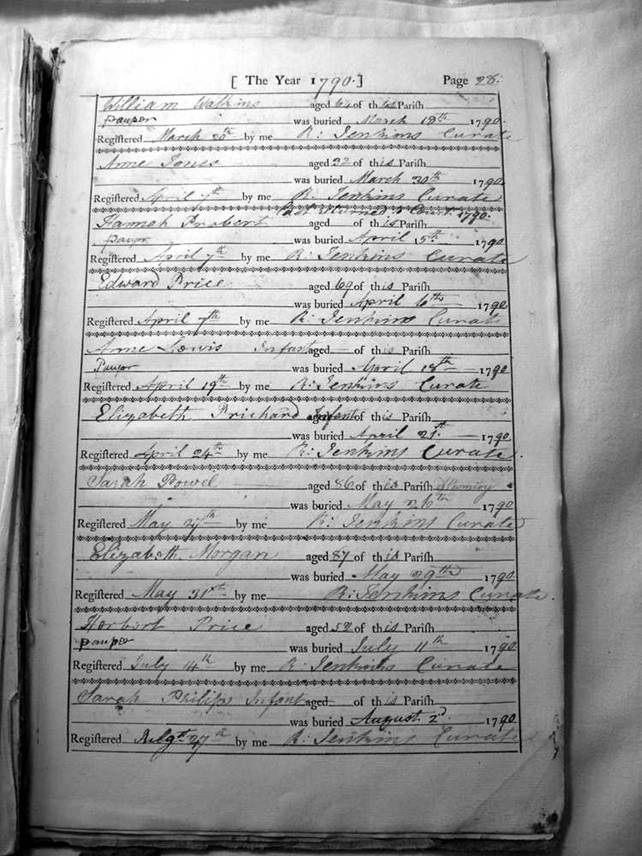 [ The Year 1790. ] Page 28.
William Watkins aged of this Parish
pauper was buried March 19th 1790
Registered March 20th by me R: Jenkins Curate
Anne Jones aged 22 of this Parish
was buried March 30th 1790
Registered April by me R: Jenkins Curate
1790.
Hannah Probert aged of this Parish
paupr was buried April 5th 1790
Registered April 7th by me R: Jenkins Curate
Edward Price aged 69 of this Parish
was buried April 6th 1790
Registered April 7th by me R: Jenkins Curate
Anne Lewis Infant aged of this Parish
Pauper was buried April 18th 1790
Registered April 19th by me R: Jenkins Curate
Elizabeth Prichard Infant of this Parish
was buried April 21st 1790
Registered April 24th by me R: Jenkins Curate
Sarah Powel aged 86 of this Parish
was buried May 26th 1790
Registered May 27th by me R: Jenkins Curate
Elizabeth Morgan aged 87 of this Parish
was buried May 29th 1790
Registered May 31st by me R: Jenkins Curate
Herbert Price aged 52 of this Parish
pauper was buried July 11th 1790
Registered July 14th by me R: Jenkins Curate
Sarah Philips Infant aged of this Parish
was buried August 2d 1790
Registered Augt 27th by me R: Jenkins Curate